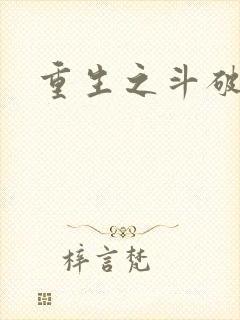 重生之斗破
梓言梵